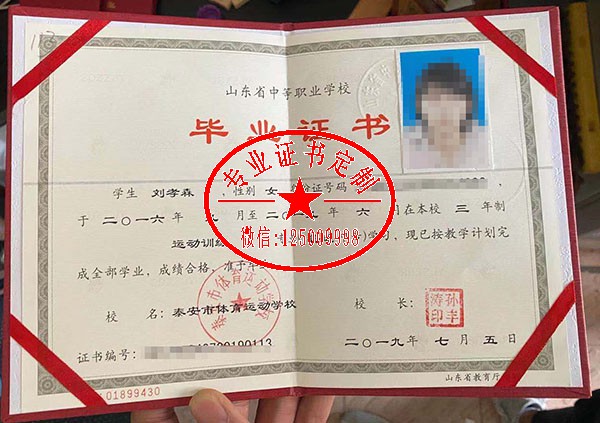 山东省中等职业学校
毕业证书
学生 刘孝森 ，性别 女 身份证号码
于 二〇一六年 九 月至 二〇一九年 六 月在本校 三 年制
运动训练 学习，现已按教学计划完
成全部学业，成绩合格，准予毕
校 名：泰安市体育运动学校
校 长：
孙丰涛印
泰安市体育运动学校
证书编号：
二〇一九年 七 月 五 日
01899430
山东省教育厅
专业证书定制
微信:125009998